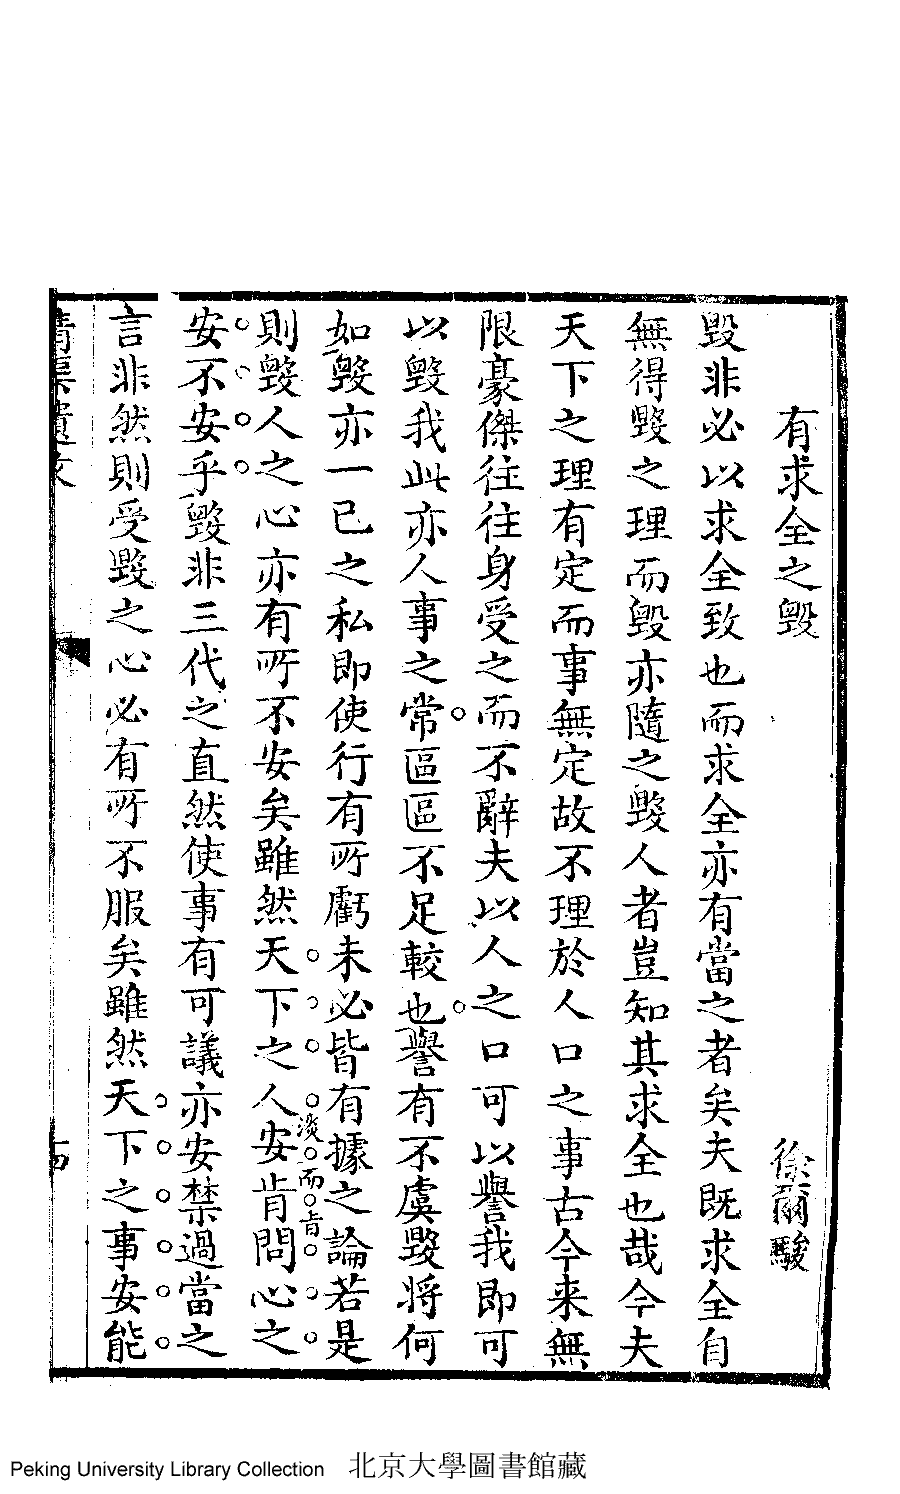 有求全之毀 徐爾駿
毀非必以求全致也而求全亦有當之者矣夫既求全自
無得毀之理而毀亦隨之毀人者豈知其求全也哉今夫
天下之理有定而事無定故不理於人口之事古今来無
限豪傑往往身受之而不辭夫以人之口可以譽我即可
以毀我此亦人事之常區區不足較也譽有不虞毀將何
如毀亦一已之私即使行有所虧未必皆有據之論若是
淡而旨
則毀人之心亦有所不安矣雖然天下之人安肯問心之
安不安乎毀非三代之直然使事有可議亦安禁過當之
言非然則受毀之心必有所不服矣雖然天下之事安能
清渠遺文
Peking University Library Collection 北京大學圖書館藏